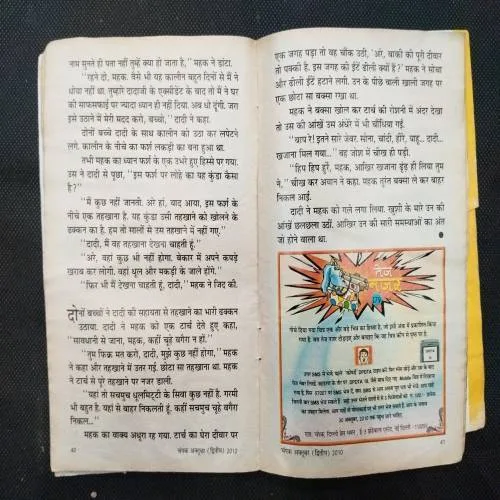 नाम सुनते ही पता नहीं तुम्हें क्या हो जाता है,'' महक ने डांटा.
''रहने दो, महक. वैसे भी यह कालीन बहुत दिनों से मैं ने
धोया नहीं था. तुम्हारे दादाजी के एक्सीडेंट के बाद तो मैं ने घर
की साफसफाई पर ज्यादा ध्यान ही नहीं दिया. अब धो दूंगी. जरा
इसे उठाने में मेरी मदद करो, बच्चो,'' दादी ने कहा.
दोनों बच्चे दादी के साथ कालीन को उठा कर लपेटने
लगे. कालीन के नीचे का फर्श लकड़ी का बना हुआ था.
तभी महक का ध्यान फर्श के एक उभरे हुए हिस्से पर गया.
उस ने दादी से पूछा, ''इस फर्श पर लोहे का यह कुंडा कैसा
है?''
''मैं कुछ नहीं जानती. अरे हां, याद आया, इस फर्श के
नीचे एक तहखाना है. यह कुंडा उसी तहखाने को खोलने के
ढक्कन का है. हम तो सालों से उस तहखाने में नहीं गए.''
''दादी, मैं वह तहखाना देखना चाहती हूं.''
''अरे, वहां कुछ भी नहीं होगा. बेकार में अपने कपड़े
खराब कर लोगी. वहां धूल और मकड़ी के जाले होंगे.''
''फिर भी मैं देखना चाहती हूं, दादी,'' महक ने जिद की.
दोनों बच्चों ने दादी की सहायता से तहखाने का भारी ढक्कन
उठाया. दादी ने महक को एक टार्च देते हुए कहा,
''सावधानी से जाना, महक, कहीं चूहे वगैरा न हों.''
''तुम फिक्र मत करो, दादी, मुझे कुछ नहीं होगा,'' महक
ने कहा और तहखाने में उतर गई. छोटा सा तहखाना था. महक
ने टार्च से पूरे तहखाने पर नजर डाली.
''यहां तो सचमुच धूलमिट्टी के सिवा कुछ नहीं है. गरमी
भी बहुत है. यहां से बाहर निकलती हूं. कहीं सचमुच चूहे वगैरा
निकल...''
महक का वाक्य अधूरा रह गया. टार्च का घेरा दीवार पर
40 चंपक अक्तूबर (द्वितीय) 2010
एक जगह पड़ा तो वह चौंक उठी, 'अरे, बाकी की पूरी दीवार
तो पक्की है. इस जगह की ईंटें ढीली क्यों हैं?' महक ने सोचा
और ढीली ईंटें हटाने लगी. उन के पीछे वाली खाली जगह पर
एक छोटा सा बक्सा रखा था.
महक ने बक्सा खोल कर टार्च की रोशनी में अंदर देखा
तो उस की आंखें उस अंधेरे में भी चौंधिया गईं.
''बाप रे! इतने सारे जेवर. सोना, चांदी, हीरे, याहू... दादी...
खजाना मिल गया...'' वह जोश में चीख ही पड़ी.
''हिप हिप हुर्रे, महक, आखिर खजाना ढूंढ़ ही लिया तुम
ने,'' चीख कर अयान ने कहा. महक तुरंत बक्सा ले कर बाहर
निकल आई.
दादी ने महक को गले लगा लिया. खुशी के मारे उन की
आंखें छलछला उठीं. आखिर उन की सारी समस्याओं का अंत
जो होने वाला था.
तेज
नजर
नीचे दिया गया चित्र एक और बड़े चित्र का हिस्सा है, जो इसी अंक में प्रकाशित किया
गया है. जरा तेज नजर दौड़ाइए और बताइए कि यह चित्र कौन से पृष्ठ पर है.
41
चंपक अक्तूबर (द्वितीय) 2010